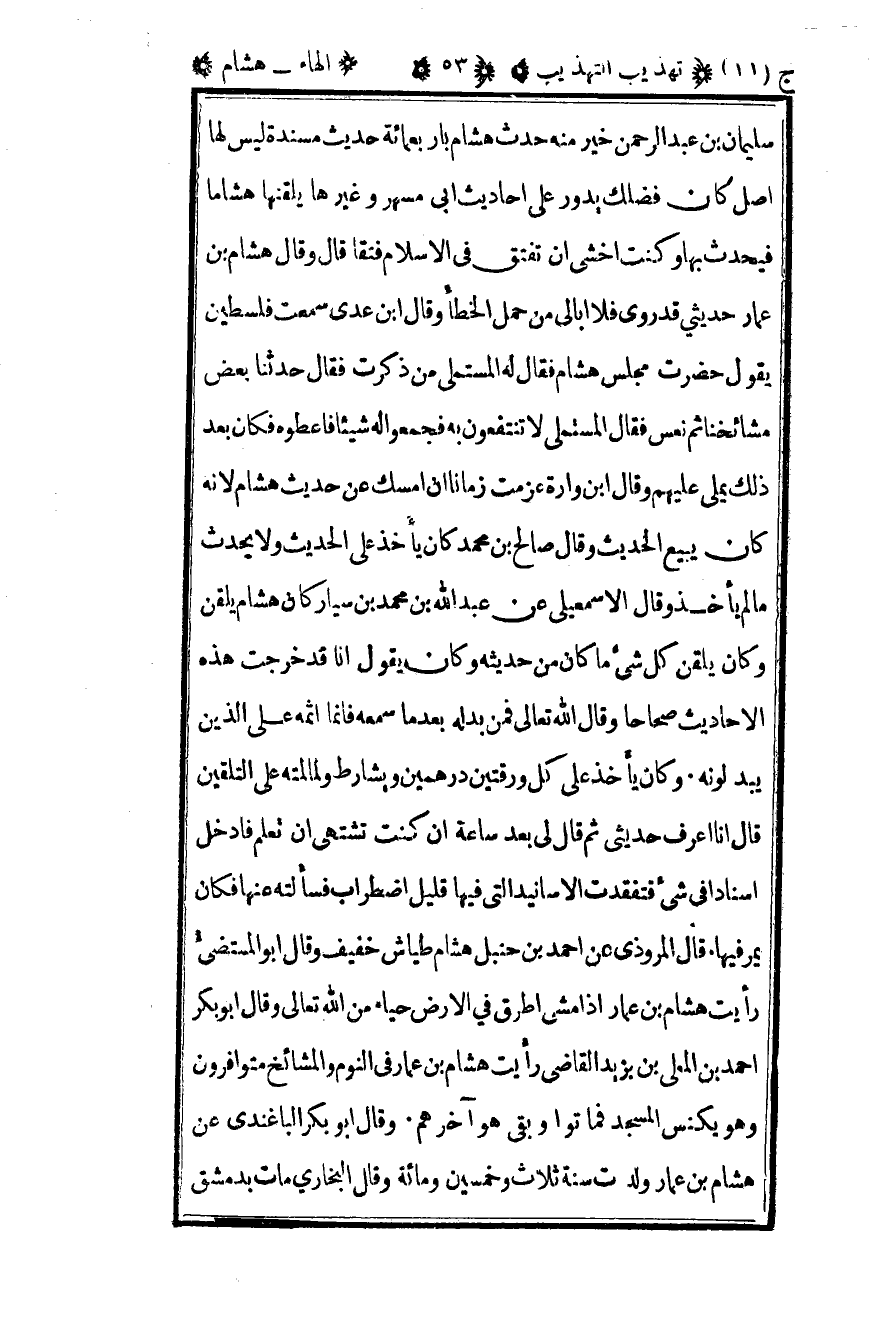 ج (١١) تهذيب التهذيب ٥٣ الهاء ـ هشام
سليمان بن عبدالرحمن خير منه حدث هشام بار بعمائة حديث مسندة ليس لها
اصل كان فضلك يدور على احاديث ابى مسهر و غير ها يلقنها هشاما
فيحدث بها وكنت اخشى ان تفتق فى الاسلام فتقا قال وقال هشام بن
عمار حديثي قدروى فلا ابالى من حمل الخطأ وقال ابن عدى سمعت فلسطين
يقول حضرت مجلس هشام فقال له المستملى من ذكرت فقال حدثنا بعض
مشائخنا ثم نعس فقال المستملى لا تنتفعون به فجمعواله شيئا فاعطوه فكان بعد
ذلك يملى عليهم وقال ابن وارة عزمت زمانا ان امسك عن حديث هشام لانه
كان يبيع الحديث وقال صالح بن محمد كان يأخذ على الحديث ولا يحدث
مالم يأخذ وقال الاسمعيلى عن عبدالله بن محمد بن سيار كان هشام يلقن
وكان يلقن كل شئ ما كان من حديثه وكان يقول انا قد خرجت هذه
الاحاديث صحاحا وقال الله تعالى فمن بدله بعدما سمعه فانما اثمه على الذين
يبد لونه . وكان يأخذ على كل ورقتين درهمين ويشارط ولما لمته على التلقين
قال انا اعرف حديثى ثم قال لى بعد ساعة ان كنت تشتهى ان تعلم فادخل
اسنادا فى شئ فتفقدت الاسانيد التى فيها قليل اضطراب فسألته عنها فكان
يمر فيها . قال المروذى عن احمد بن حنبل هشام طياش خفيف وقال ابو المستضئ
رأيت هشام بن عمار اذا مشى اطرق في الارض حياء من الله تعالى وقال ابوبكر
احمد بن المعلى بن يزيد القاضى رأيت هشام بن عمار فى النوم والمشائخ متوافرون
وهو يكنس المسجد فما توا و بقى هو آخر هم . وقال ابو بكر الباغندى عن
هشام بن عمار ولد ت سنة ثلاث وخمسين ومائة وقال البخاري مات بدمشق